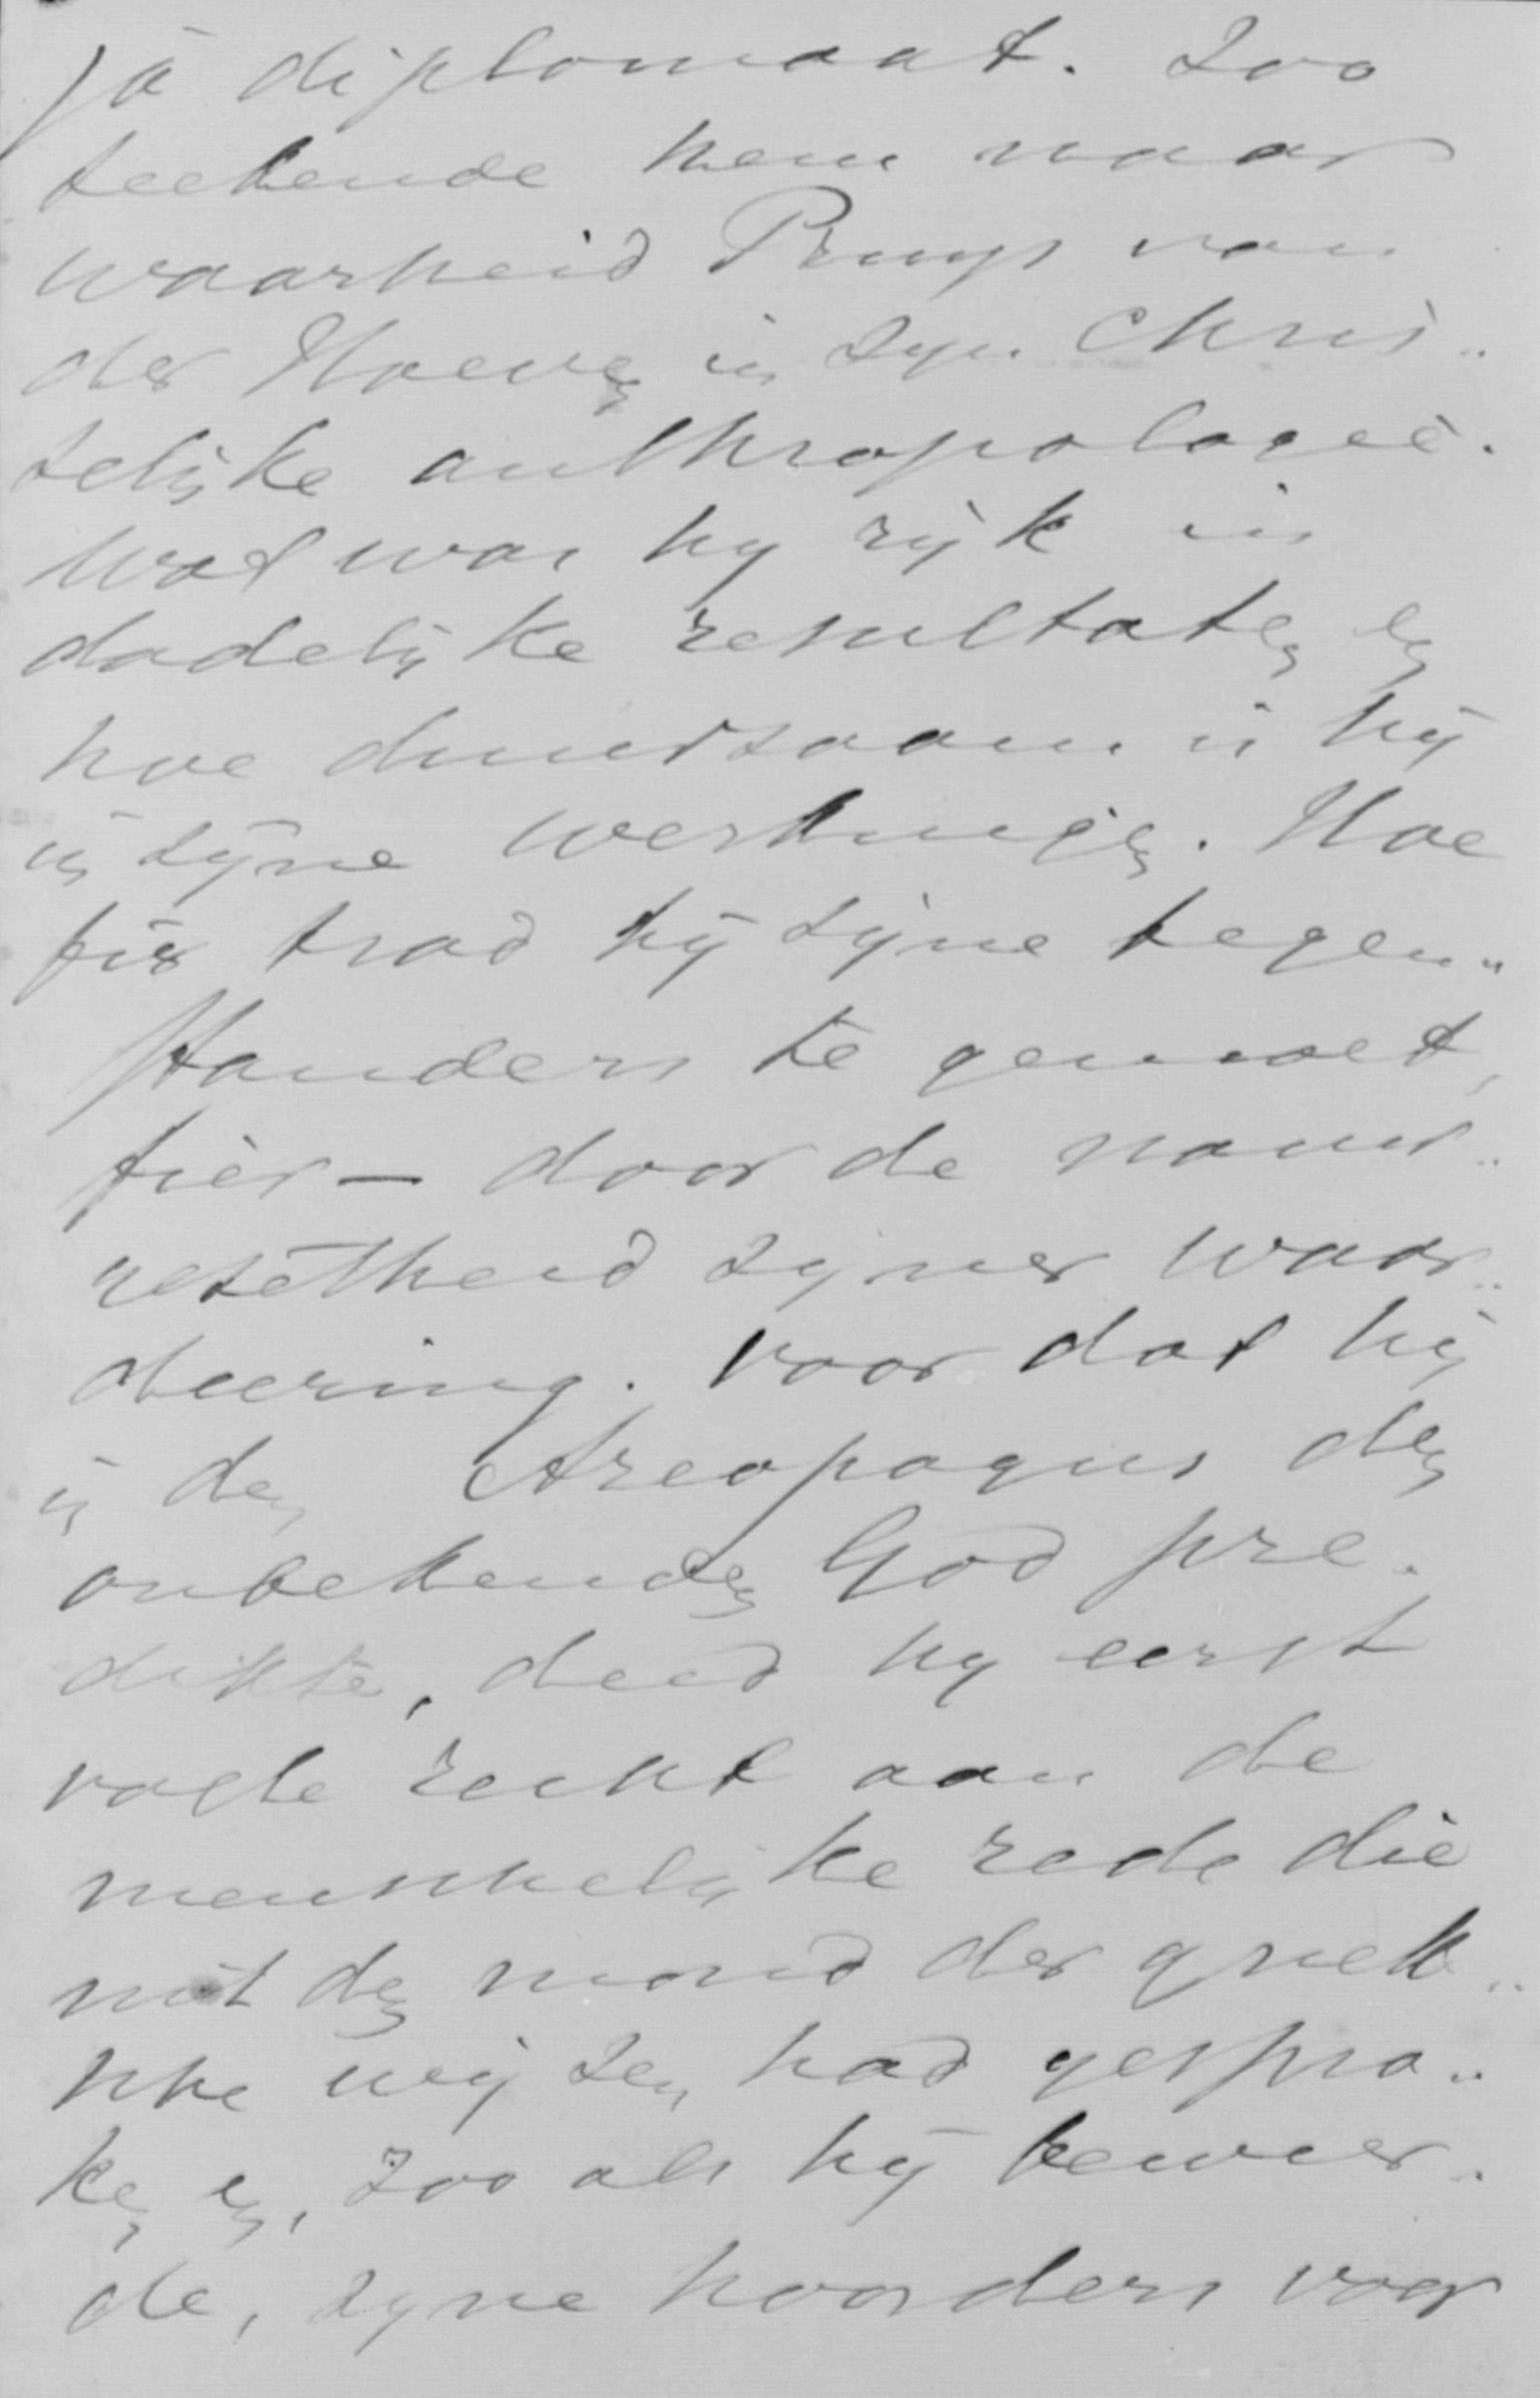 ja diplomaat. Zoo
teekende hem naar
waarheid Pruys van
der Hoeven in zyn Chris..
telijke anthropologie.
Wat was hy rijk in
dadelijke resultaten en
hoe duurzaam is hij
in zijne werkingen. Hoe
fier trad hij zijne tegen..
standers te gemoet,
fier — door de nauw..
gezetheid zyner waar..
deering. Voor dat hij
in den Areopagus den
onbekenden God pre.
dikte, deed hy eerst
volle recht aan de
menschelijke rede die
uit den mond der griek..
sche wijzen had gespro..
ken en, zoo als hij beweer.
de, zyne hoorders voor